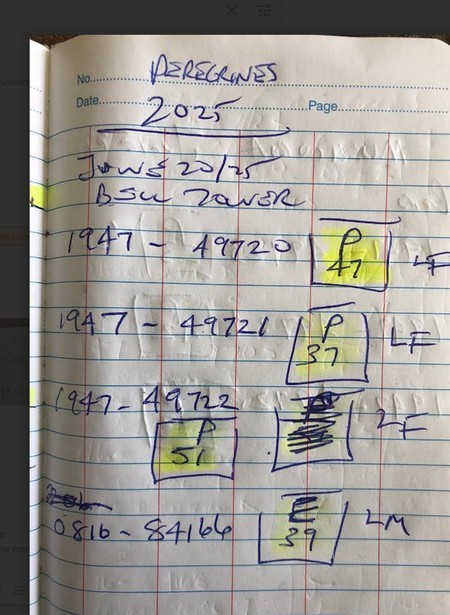 No. PEREGRINES
Date. 2025 Page.
JUNE 20/25
BELL TOWER
1947 - 49720 P 47 LF
1947 - 49721 P 37 LF
1947 - 49722 LF
P 51
0816 - 84166 E 39 LM